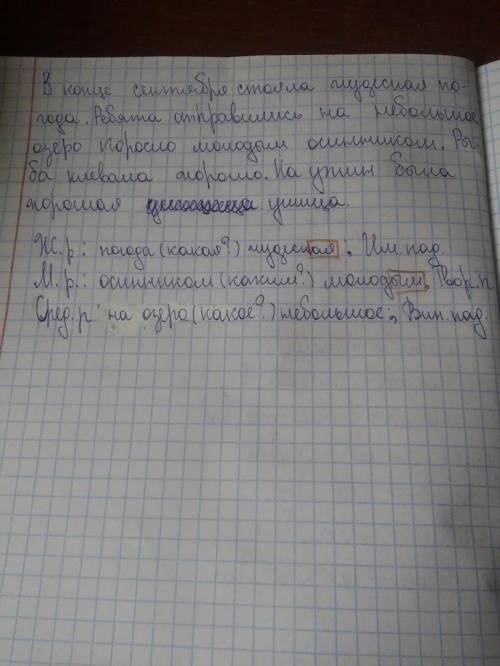 В конце сентября стояла чудесная по-
года. Ребята отправились на небольшое
озеро поросло молодым осинником. Ры-
ба клевала хорошо. На ужин была
хорошая ушица.
Ж.р.: погода (какая?) чудесная. Им. пад.
М.р.: осинником (каким?) молодым. Твор.п
Сред.р: на озеро (какое?) небольшое; Вин. пад.